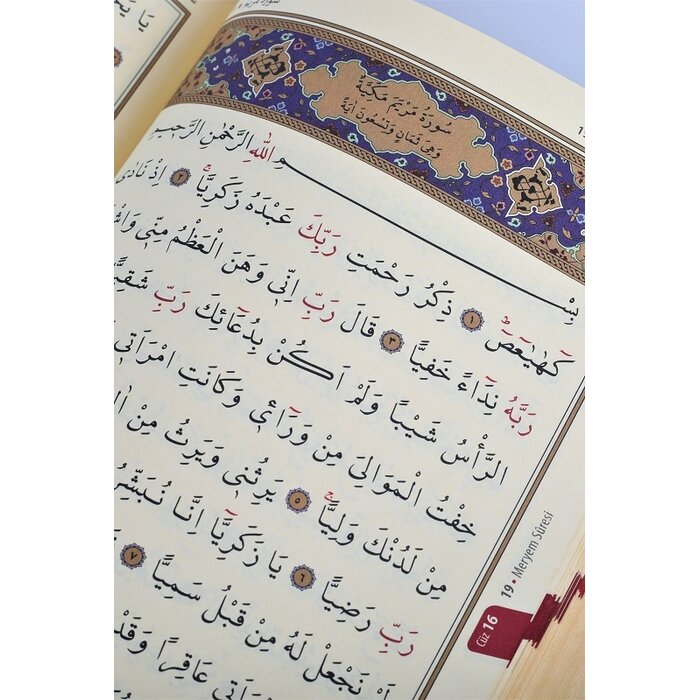 سُورَةُ مَرْيَمَ مَكِّيَّةٌ
وَهِيَ ثَمَانٍ وَتِسْعُونَ اٰيَةً
بِسْمِ اللّٰهِ الرَّحْمٰنِ الرَّحِيمِ
كٓهٰيٰعٓصٓ ١ ذِكْرُ رَحْمَتِ رَبِّكَ عَبْدَهُ زَكَرِيَّاۚ ٢ اِذْ نَادٰى
رَبَّهُ نِدَٓاءً خَفِيًّا ٣ قَالَ رَبِّ اِنّ۪ي وَهَنَ الْعَظْمُ مِنّ۪ي
الرَّأْسُ شَيْبًا وَلَمْ اَكُنْ بِدُعَٓائِكَ رَبِّ
خِفْتُ الْمَوَالِيَ مِنْ وَرَٓائ۪ي وَكَانَتِ امْرَاَت۪ي
مِنْ لَدُنْكَ وَلِيًّاۙ ٥ يَرِثُن۪ي وَيَرِثُ مِنْ
رَبِّ رَضِيًّا ٦ يَا زَكَرِيَّٓا اِنَّا
نَجْعَلْ لَهُ مِنْ قَبْلُ سَمِيًّا ٧
عَاقِرًا
19 • Meryem Sûresi
Cüz 16